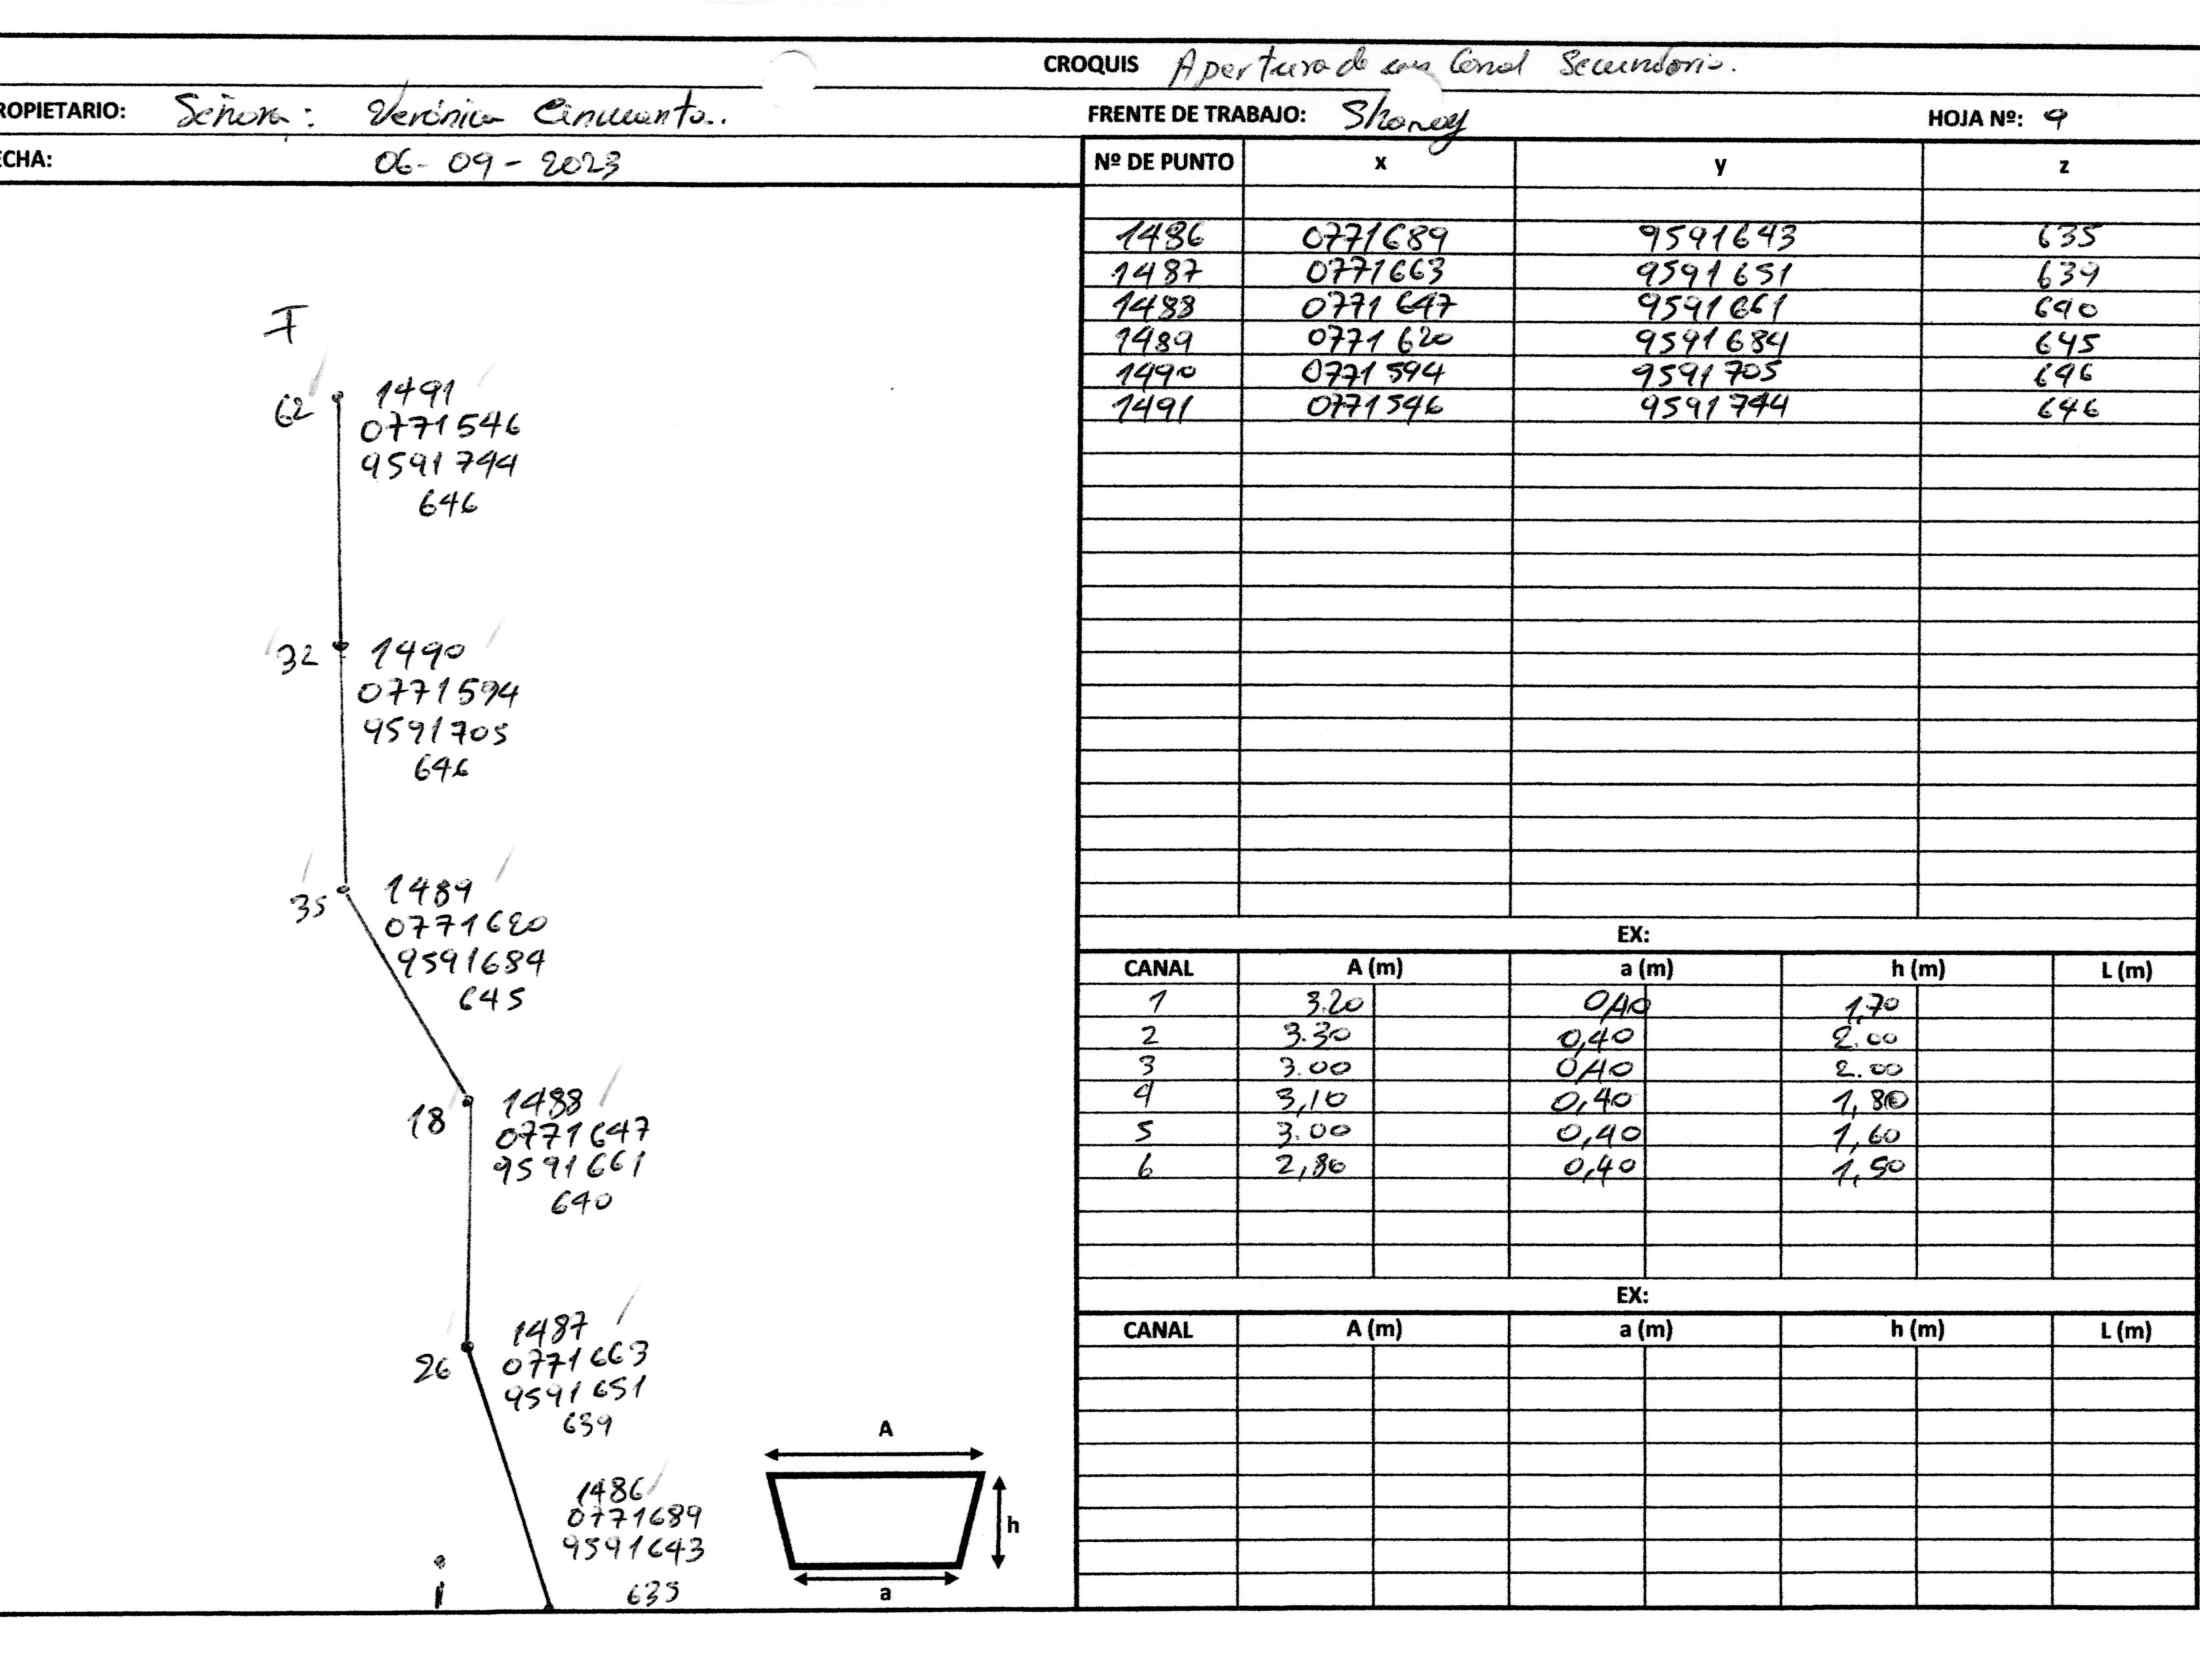 CROQUIS Apertura de un Canal Secundario.
ROPIETARIO: Señora: Verónica Cincuanto..
FRENTE DE TRABAJO: Shanay HOJA Nº: 9
ECHA: 06-09-2023
Nº DE PUNTO x y z
1486 0771689 9591643 635
1487 0771663 9591651 639
1488 0771647 9591661 640
1489 0771620 9591684 645
1490 0771594 9591705 646
1491 0771546 9591744 646
F
62 1491
0771546
9591744
646
32 1490
0771594
9591705
646
35 1489
0771620
9591684
645
18 1488
0771647
9591661
640
26 1487
0771663
9591651
639
1486
0771689
9591643
635
i
A
h
a
EX:
CANAL A (m) a (m) h (m) L (m)
1 3.20 0,40 1,70
2 3.30 0,40 2.00
3 3.00 0,40 2.00
4 3,10 0,40 1,80
5 3.00 0,40 1,60
6 2,80 0,40 1,50
EX:
CANAL A (m) a (m) h (m) L (m)